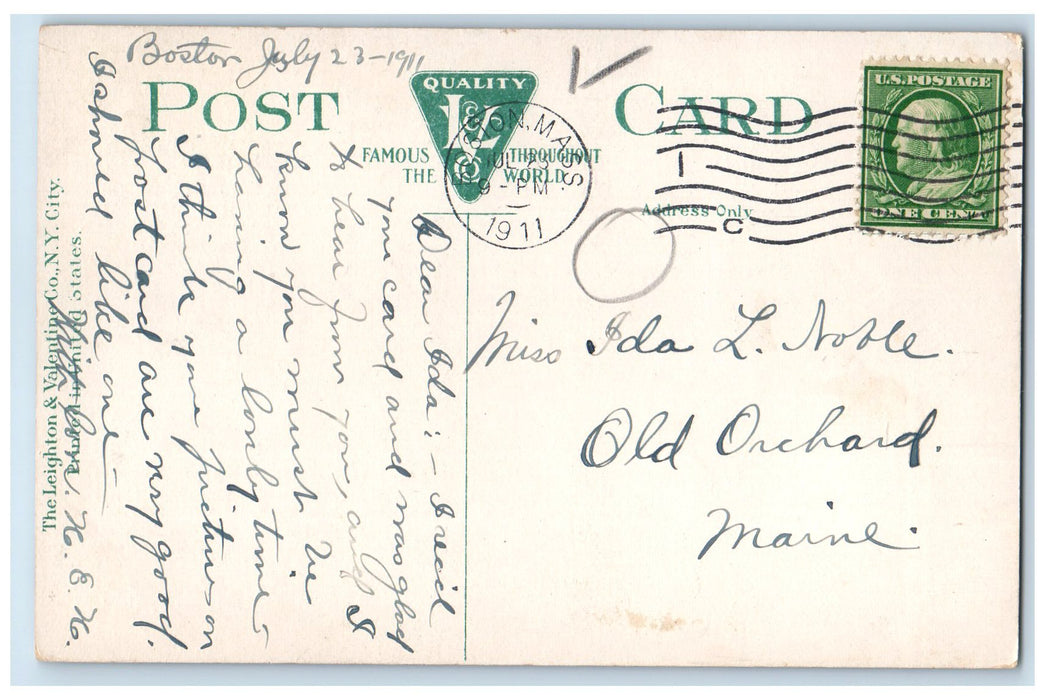 Boston July 23-1911
POST CARD
QUALITY
L&V
FAMOUS THROUGHOUT
THE WORLD
BOSTON, MASS
JUL 23
9-PM
1911
1 C
U.S. POSTAGE
ONE CENT
Address Only
Dear Ida:- I rec'd
your card and was glad
to hear from you, and I
know you must be
having a lonly time-
I think your pictures on
postcard are very good.
I
like one-
H. E. H.
Miss Ida L. Noble.
Old Orchard.
Maine.
The Leighton & Valentine Co., N.Y. City.
Printed in United States.